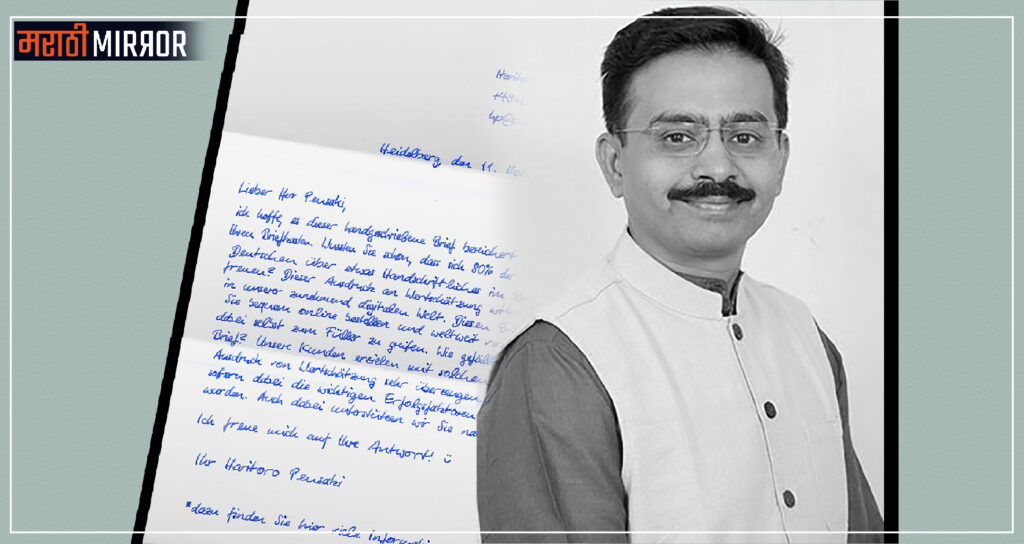 मराठी MIRROR
+49-6
Heidelberg, den 11. No
Lieber Herr Pensaki,
ich hoffe, es dieser handgeschriebene Brief bereichert
Ihren Briefkasten. Wussten Sie schon, dass sich 80% der
Deutschen über etwas Handschriftliches im B
freuen? Dieser Ausdruck an Wertschätzung wirk
in unserer zunehmend digitalen Welt. Diesen
Sie bequem online bestellen und weltweit
dabei selbst zum Füller zu greifen. Wie gefällt
Brief? Unsere Kunden erzielen mit solchen
Ausdruck von Wertschätzung sehr überzeugen
sofern dabei die wichtigen Erfolgsfaktoren
wurden. Auch dabei unterstützen wir Sie na
Ich freue mich auf Ihre Antwort! ☺
Ihr Haritoro Pensaki
*dazu finden Sie hier viele informati